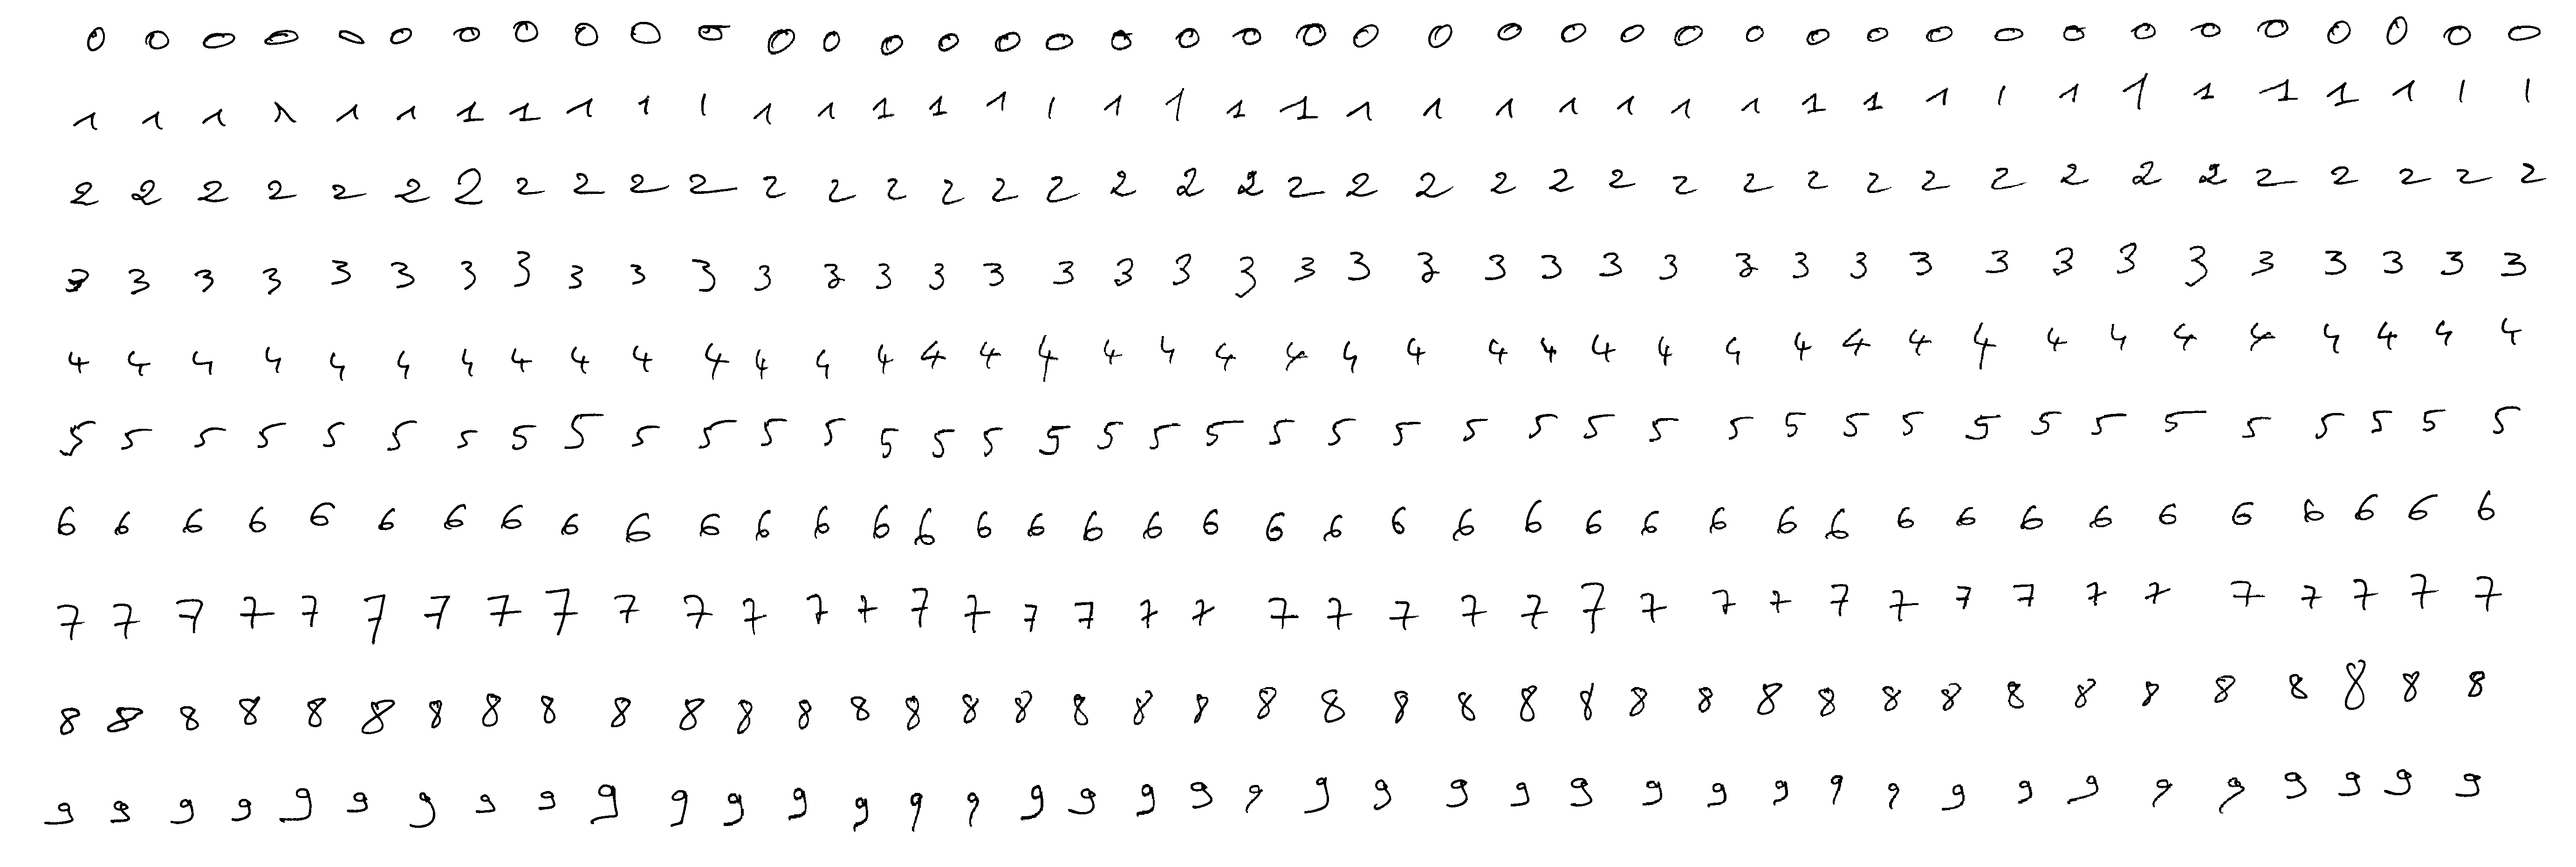 0 0 0 0 0 0 0 0 0 0 0 0 0 0 0 0 0 0 0 0 0 0 0 0 0 0 0 0 0 0 0 0 0 0 0 0 0 0 0 0
1 1 1 1 1 1 1 1 1 1 1 1 1 1 1 1 1 1 1 1 1 1 1 1 1 1 1 1 1 1 1 1 1 1 1 1 1 1 1 1
2 2 2 2 2 2 2 2 2 2 2 2 2 2 2 2 2 2 2 2 2 2 2 2 2 2 2 2 2 2 2 2 2 2 2 2 2 2 2 2
3 3 3 3 3 3 3 3 3 3 3 3 3 3 3 3 3 3 3 3 3 3 3 3 3 3 3 3 3 3 3 3 3 3 3 3 3 3 3 3
4 4 4 4 4 4 4 4 4 4 4 4 4 4 4 4 4 4 4 4 4 4 4 4 4 4 4 4 4 4 4 4 4 4 4 4 4 4 4 4
5 5 5 5 5 5 5 5 5 5 5 5 5 5 5 5 5 5 5 5 5 5 5 5 5 5 5 5 5 5 5 5 5 5 5 5 5 5 5 5
6 6 6 6 6 6 6 6 6 6 6 6 6 6 6 6 6 6 6 6 6 6 6 6 6 6 6 6 6 6 6 6 6 6 6 6 6 6 6 6
7 7 7 7 7 7 7 7 7 7 7 7 7 7 7 7 7 7 7 7 7 7 7 7 7 7 7 7 7 7 7 7 7 7 7 7 7 7 7 7
8 8 8 8 8 8 8 8 8 8 8 8 8 8 8 8 8 8 8 8 8 8 8 8 8 8 8 8 8 8 8 8 8 8 8 8 8 8 8 8
9 9 9 9 9 9 9 9 9 9 9 9 9 9 9 9 9 9 9 9 9 9 9 9 9 9 9 9 9 9 9 9 9 9 9 9 9 9 9 9